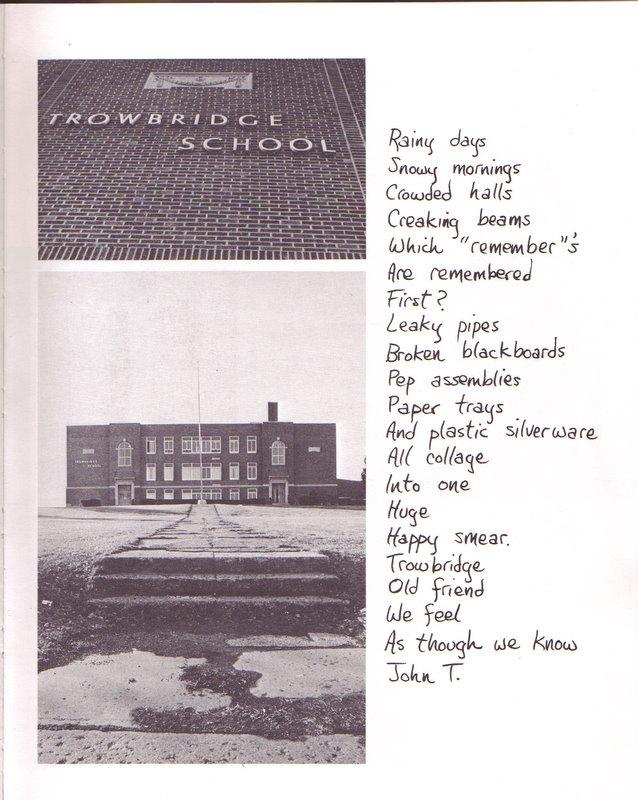 TROWBRIDGE
SCHOOL
Rainy days
Snowy mornings
Crowded halls
Creaking beams
Which "remember"'s
Are remembered
First?
Leaky pipes
Broken blackboards
Pep assemblies
Paper trays
And plastic silverware
All collage
Into one
Huge
Happy smear.
Trowbridge
Old friend
We feel
As though we know
John T.
TROWBRIDGE
SCHOOL